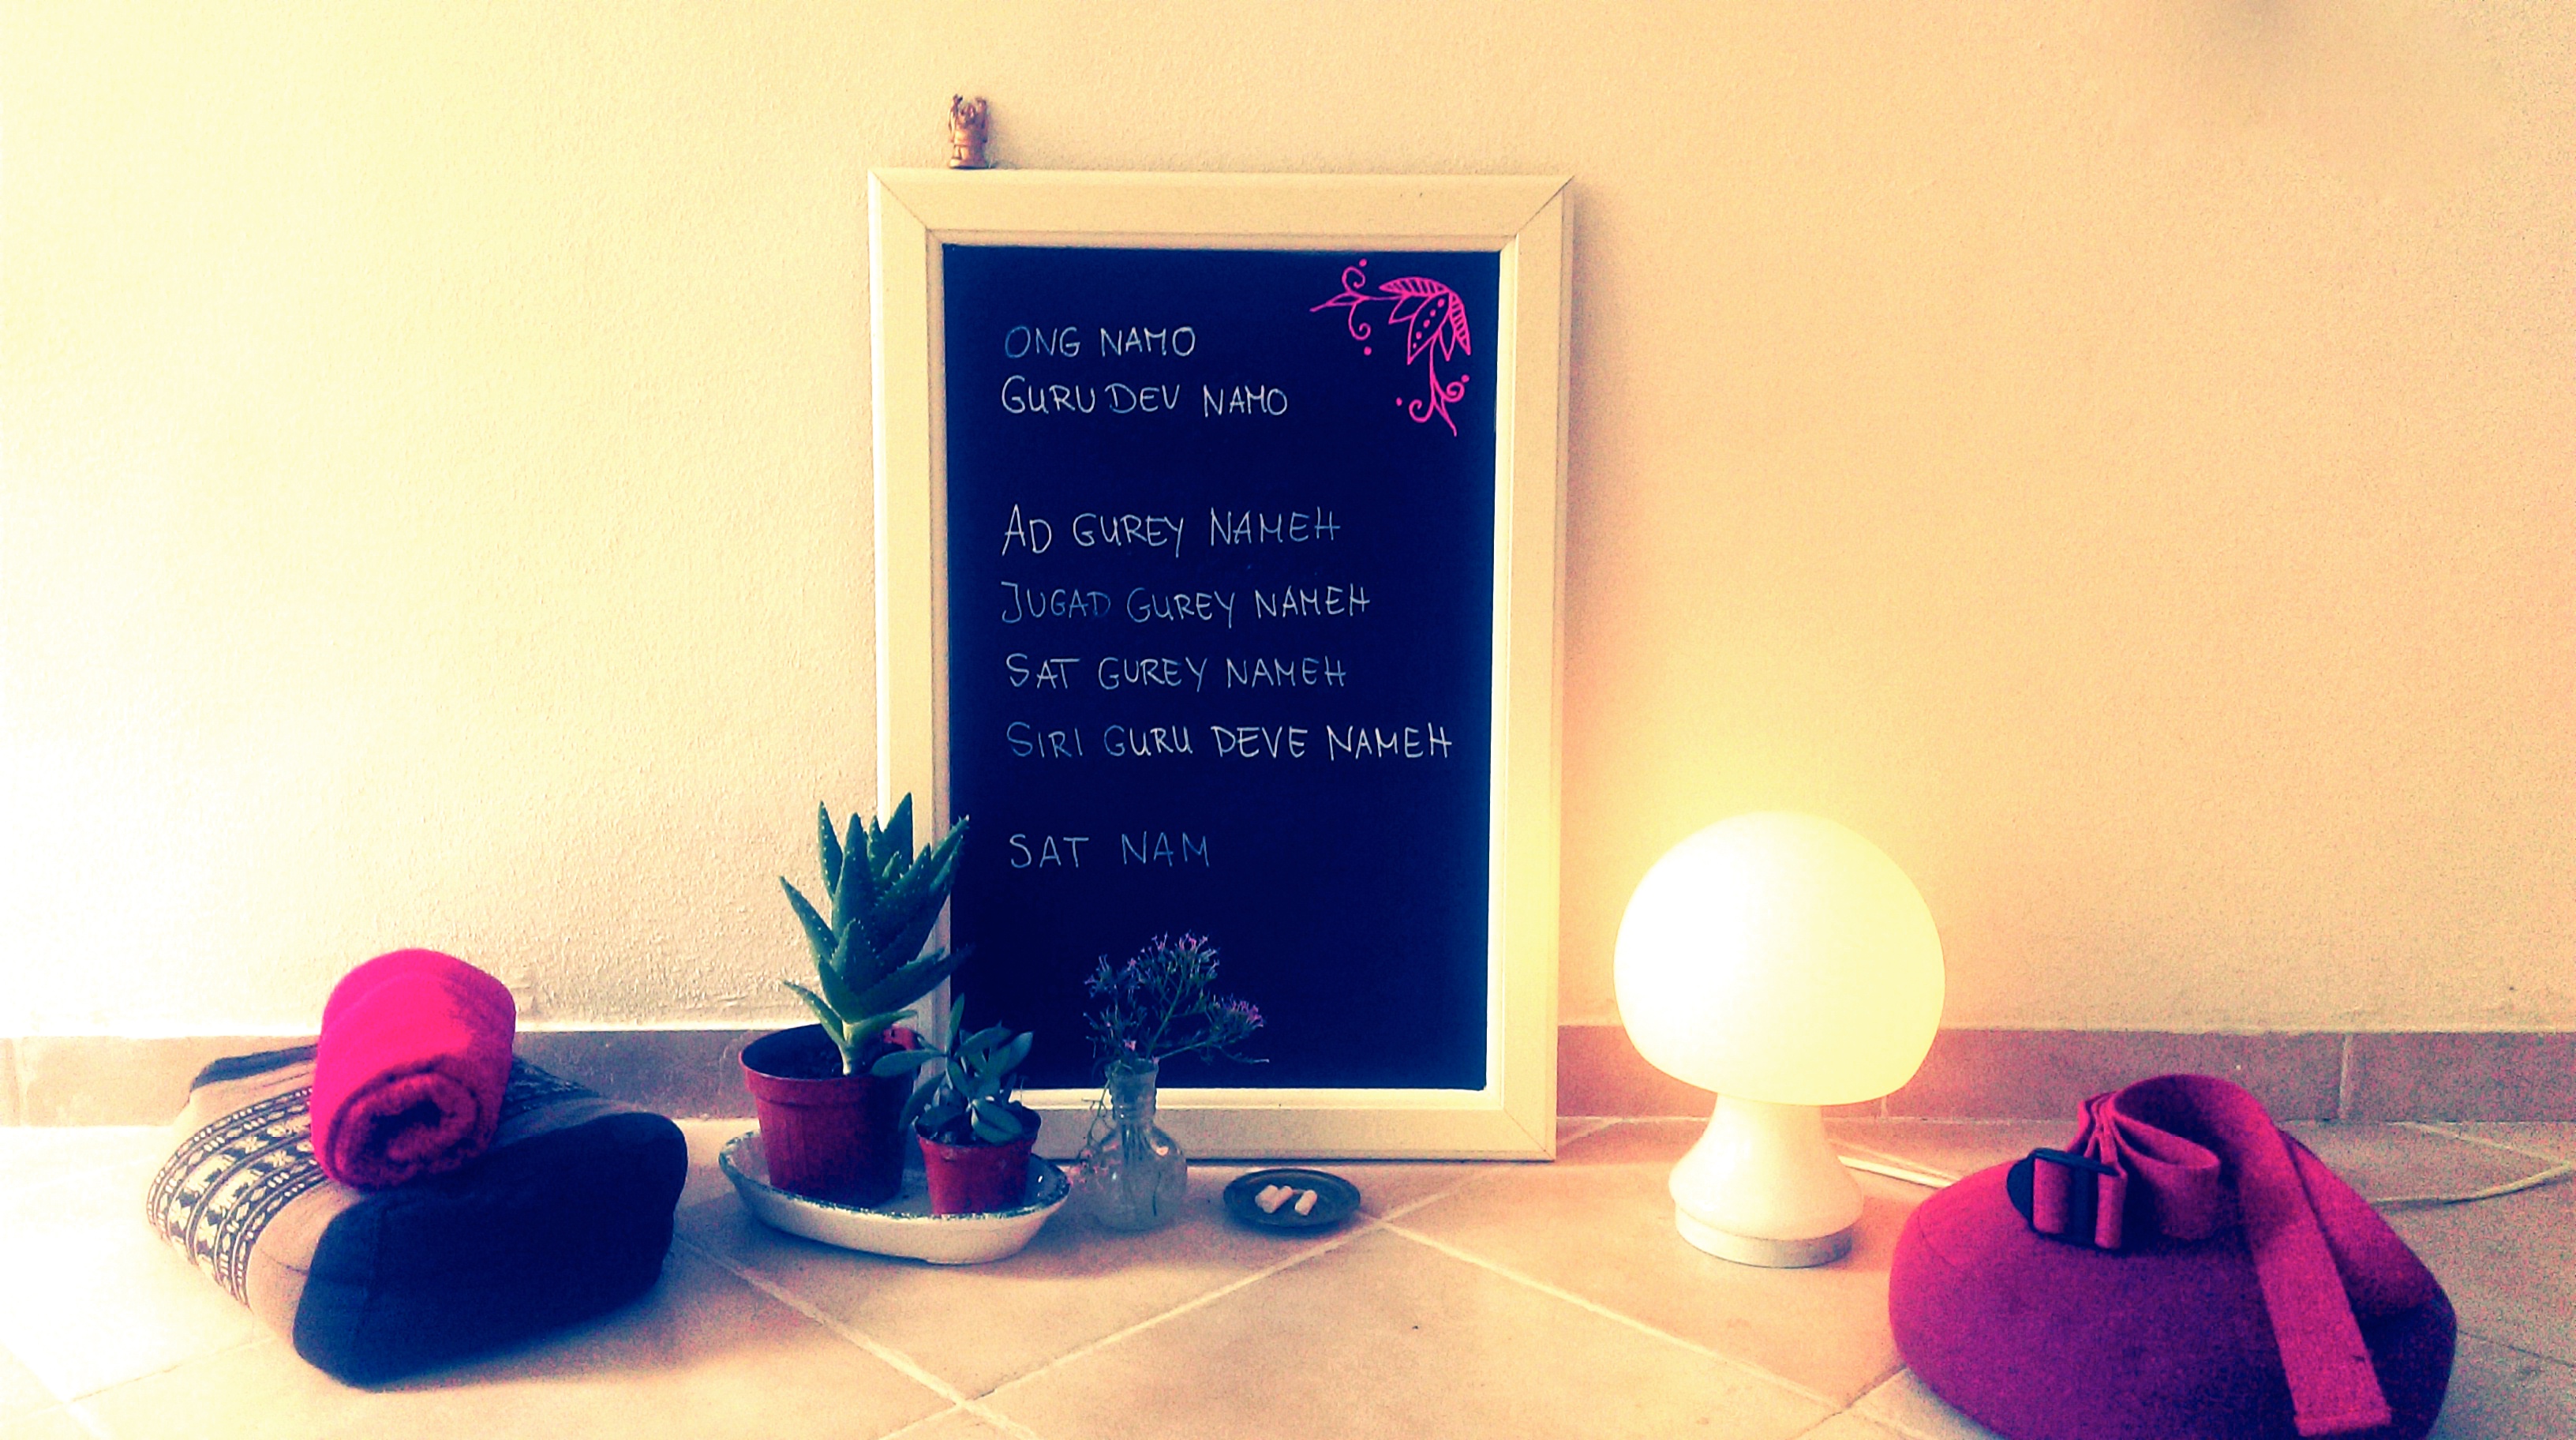 ONG NAMO
GURU DEV NAMO
AD GUREY NAMEH
JUGAD GUREY NAMEH
SAT GUREY NAMEH
SIRI GURU DEVE NAMEH
SAT NAM